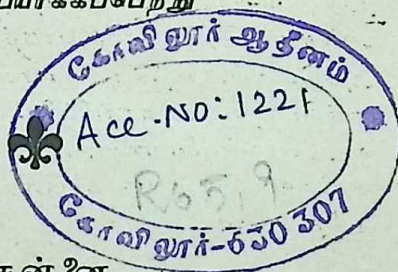 கோவிலூர் ஆதீனம்
Acc.NO: 1221
R65,9
கோவிலூர்-630 307